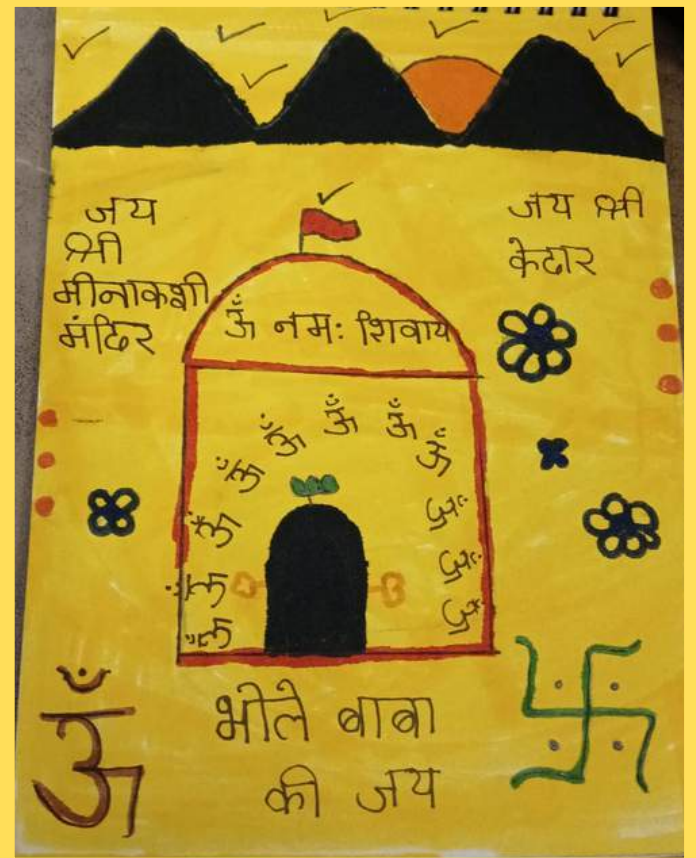 जय
श्री
मीनाकशी
मंदिर
जय श्री
केदार
ॐ नमः शिवाय
ॐ ॐ ॐ ॐ ॐ ॐ ॐ ॐ ॐ ॐ ॐ ॐ
ॐ
भोले बाबा
की जय